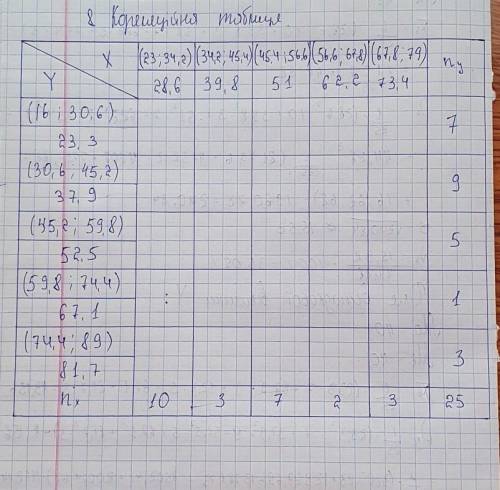 8 Кореляційна таблиця
X (23; 34,2) (34,2; 45,4) (45,4; 56,6) (56,6; 67,8) (67,8; 79) nу
Y 28,6 39,8 51 62,2 73,4
(16; 30,6)
23,3 7
(30,6; 45,2)
37,9 9
(45,2; 59,8)
52,5 5
(59,8; 74,4)
67,1 : 1
(74,4; 89)
81,7 3
nx 10 3 7 2 3 25